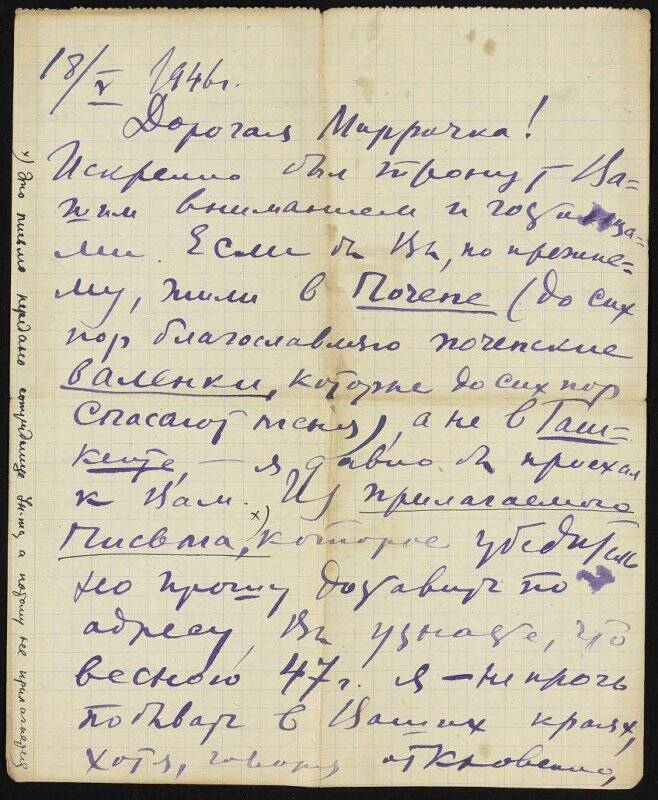 18/V 1946г.
Дорогая Миррочка!
Искренно был тронут Ва-
шим вниманием и
ми. Если бы Вы, по прежне-
му, жили в Почепе (до сих
пор благославляю почепские
валенки, которые до сих пор
спасают меня), а не в Таш-
кенте, — я давно бы приехал
к Вам. Из прилагаемого
письма, x) которое убедитель
но прошу доставить по
адресу, Вы узнаете, что
весною 47г. я — не прочь
побывать в Ваших краях,
хотя, говоря откновенно,
x) Это письмо передано сотруднице а потому не прилагается